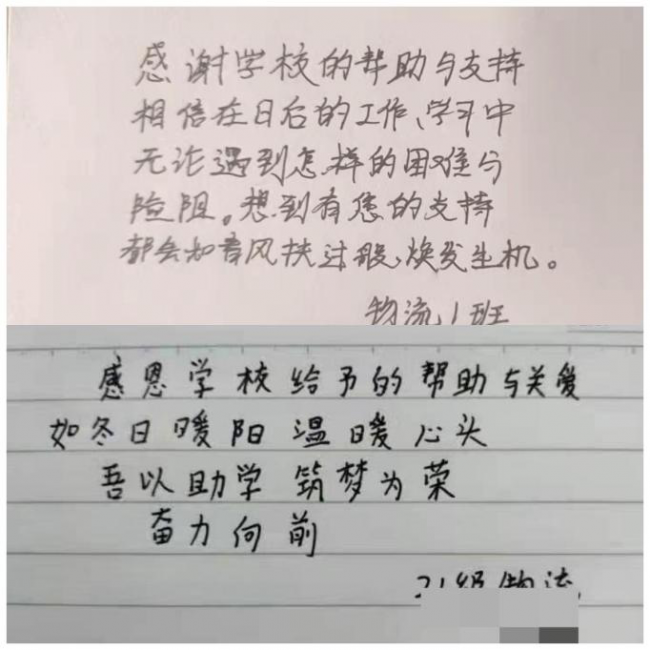 感谢学校的帮助与支持
相信在日后的工作、学习中
无论遇到怎样的困难与
险阻。想到有您的支持
都会如春风扶过般,焕发生机。
物流1班
感恩学校给予的帮助与关爱
如冬日暖阳温暖心头
吾以助学 筑梦为荣
奋力向前
21级物流